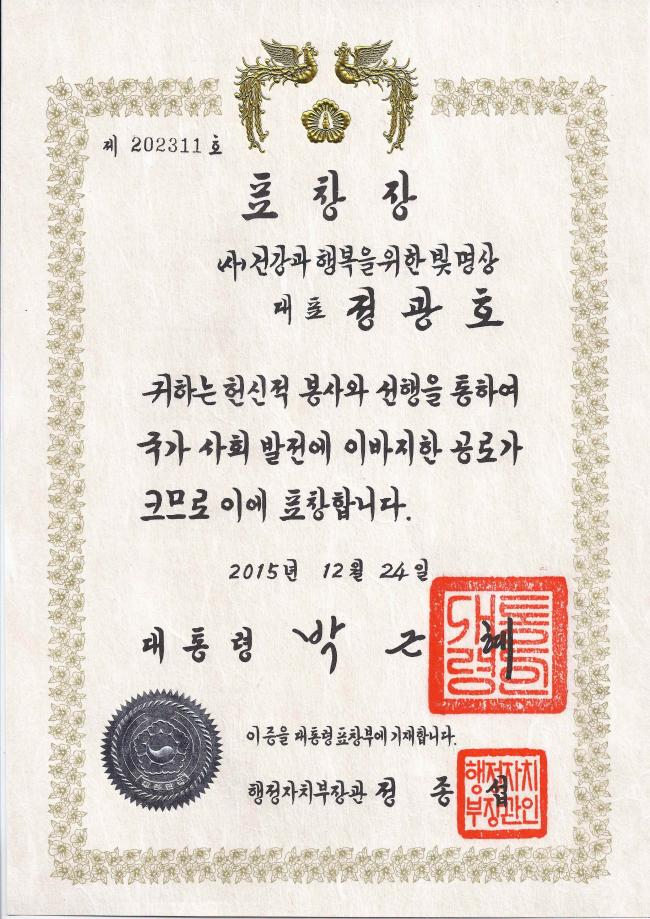 제 202311 호
표 창 장
(사)건강과 행복을 위한 빛명상
대표 정 광 호
귀하는 헌신적 봉사와 선행을 통하여
국가 사회 발전에 이바지한 공로가
크므로 이에 표창합니다.
2015년 12월 24일
대 통 령 박 근 혜
대통령의인
이 증을 대통령표창부에 기재합니다.
행정자치부장관 정 종 섭
행정자치
부장관인